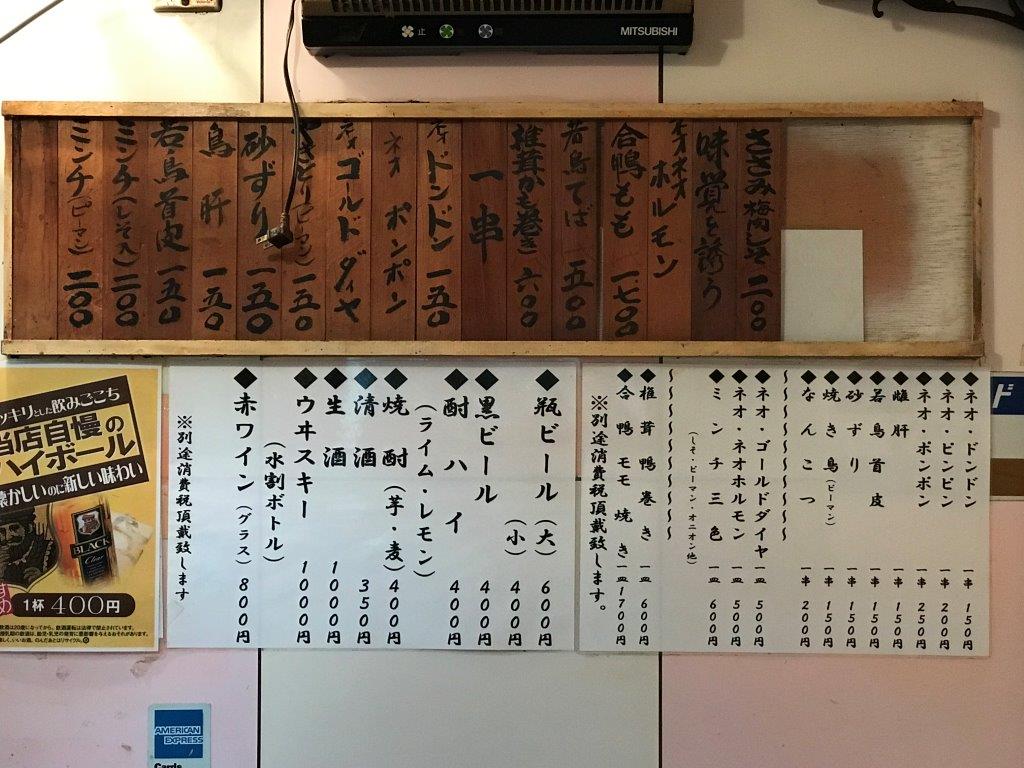 止
MITSUBISHI
ささみ梅肉しそ 二〇〇
味覚を誘う
ネオネオ
ホルモン
合鴨もも 一、七〇〇
若鳥てば 五〇〇
椎茸かも巻き 六〇〇
一串
ネオ ドンドン 一五〇
ネオ ポンポン
ネオ ゴールドダイヤ
やきとり(ピーマン) 一五〇
砂ずり 一五〇
鳥肝 一五〇
若鳥首皮 一五〇
ミンチ(しそ入) 二〇〇
ミンチ(ピーマン) 二〇〇
◆ネオ・ドンドン 一串 150円
◆ネオ・ピンピン 一串 200円
◆ネオ・ポンポン 一串 250円
◆雌肝 一串 150円
◆若鳥首皮 一串 150円
◆砂ずり 一串 150円
◆焼き鳥(ピーマン) 一串 150円
◆なんこつ 一串 200円
◆ネオ・ゴールドダイヤ 一皿 500円
◆ネオ・ネオホルモン 一皿 500円
◆ミンチ三色 一皿 600円
(しそ・ピーマン・オニオン他)
◆椎茸鴨巻き 一皿 600円
◆合鴨モモ焼き 一皿 1700円
※別途消費税頂戴致します。
◆瓶ビール(大) 600円
(小) 400円
◆黒ビール 400円
◆酎ハイ 400円
(ライム・レモン)
◆焼酎(芋・麦) 400円
◆清酒 350円
◆生酒 1000円
◆ウヰスキー 1000円
(水割ボトル)
◆赤ワイン(グラス) 800円
※別途消費税頂戴致します
ッキリとした飲みごこち
当店自慢の
ハイボール
懐かしいのに新しい味わい
BLACK
Clear
1杯 400円
ド
AMERICAN
EXPRESS
Cards